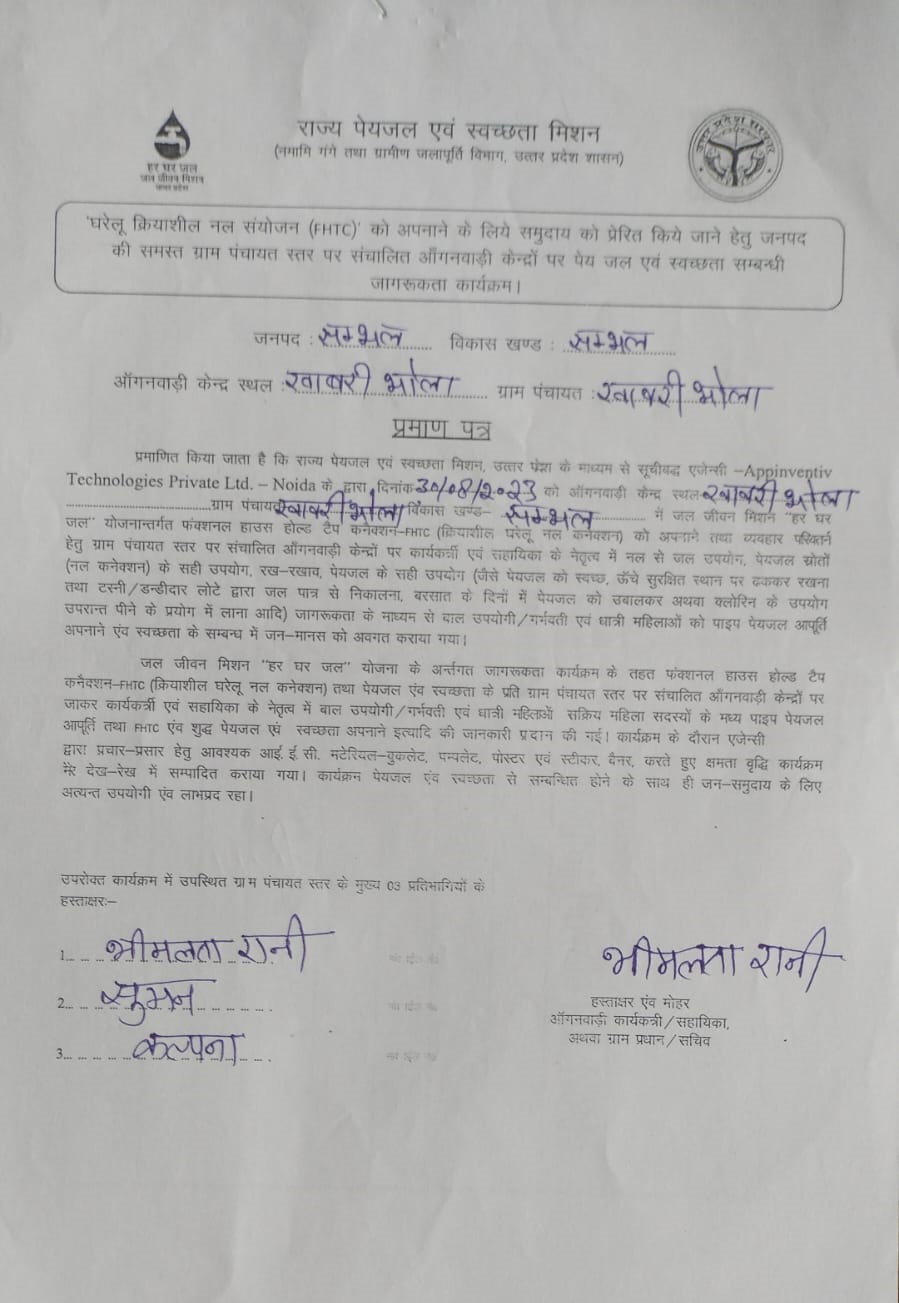 राज्य पेयजल एवं स्वच्छता मिशन
(नमामि गंगे तथा ग्रामीण जलापूर्ति विभाग, उत्तर प्रदेश शासन)
हर घर जल
जल जीवन मिशन
उत्तर प्रदेश सरकार
'घरेलू क्रियाशील नल संयोजन (FHTC)' को अपनाने के लिये समुदाय को प्रेरित किये जाने हेतु जनपद
की समस्त ग्राम पंचायत स्तर पर संचालित ऑंगनवाड़ी केन्द्रों पर पेय जल एवं स्वच्छता सम्बन्धी
जागरूकता कार्यक्रम।
जनपद : सम्भल विकास खण्ड : सम्भल
ऑंगनवाड़ी केन्द्र स्थल : खाबरी भोला ग्राम पंचायत : खाबरी भोला
प्रमाण पत्र
प्रमाणित किया जाता है कि राज्य पेयजल एवं स्वच्छता मिशन, उत्तर प्रेदश के माध्यम से सूचीबद्ध एजेन्सी –Appinventiv
Technologies Private Ltd. – Noida के द्वारा दिनांक 30/08/2023 को ऑंगनवाड़ी केन्द्र स्थल खाबरी भोला
ग्राम पंचायत खाबरी भोला विकास खण्ड– सम्भल में जल जीवन मिशन "हर घर
जल" योजनान्तर्गत फंक्शनल हाउस होल्ड टैप कनेक्शन–FHTC (क्रियाशील घरेलू नल कनेक्शन) को अपनाने तथा व्यवहार परिवर्तन
हेतु ग्राम पंचायत स्तर पर संचालित ऑंगनवाड़ी केन्द्रों पर कार्यकर्त्री एवं सहायिका के नेतृत्व में नल से जल उपयोग, पेयजल स्रोतों
(नल कनेक्शन) के सही उपयोग, रख–रखाव, पेयजल के सही उपयोग (जैसे पेयजल को स्वच्छ, ऊँचे सुरक्षित स्थान पर ढककर रखना
तथा टरनी/डन्डीदार लोटे द्वारा जल पात्र से निकालना, बरसात के दिनों में पेयजल को उबालकर अथवा क्लोरिन के उपयोग
उपरान्त पीने के प्रयोग में लाना आदि) जागरूकता के माध्यम से बाल उपयोगी/गर्भवती एवं धात्री महिलाओं को पाइप पेयजल आपूर्ति
अपनाने एंव स्वच्छता के सम्बन्ध में जन–मानस को अवगत कराया गया।
जल जीवन मिशन "हर घर जल" योजना के अर्न्तगत जागरूकता कार्यक्रम के तहत फंक्शनल हाउस होल्ड टैप
कनैक्शन–FHTC (क्रियाशील घरेलू नल कनेक्शन) तथा पेयजल एंव स्वच्छता के प्रति ग्राम पंचायत स्तर पर संचालित ऑंगनवाड़ी केन्द्रों पर
जाकर कार्यकर्त्री एवं सहायिका के नेतृत्व में बाल उपयोगी/गर्भवती एवं धात्री महिलाओं सक्रिय महिला सदस्यों के मध्य पाइप पेयजल
आपूर्ति तथा FHTC एंव शुद्ध पेयजल एवं स्वच्छता अपनाने इत्यादि की जानकारी प्रदान की गई। कार्यक्रम के दौरान एजेन्सी
द्वारा प्रचार–प्रसार हेतु आवश्यक आई. ई. सी. मटेरियल–बुकलेट, पम्पलेट, पोस्टर एवं स्टीकर, बैनर, करते हुए क्षमता वृद्धि कार्यक्रम
मेरे देख–रेख में सम्पादित कराया गया। कार्यक्रम पेयजल एंव स्वच्छता से सम्बन्धित होने के साथ ही जन–समुदाय के लिए
अत्यन्त उपयोगी एंव लाभप्रद रहा।
उपरोक्त कार्यक्रम में उपस्थित ग्राम पंचायत स्तर के मुख्य 03 प्रतिभागियों के
हस्ताक्षरः–
1... भीमलता रानी
2... सुमन
3... कल्पना
भीमलता रानी
हस्ताक्षर एंव मोहर
ऑंगनवाड़ी कार्यकत्री/सहायिका,
अथवा ग्राम प्रधान/सचिव